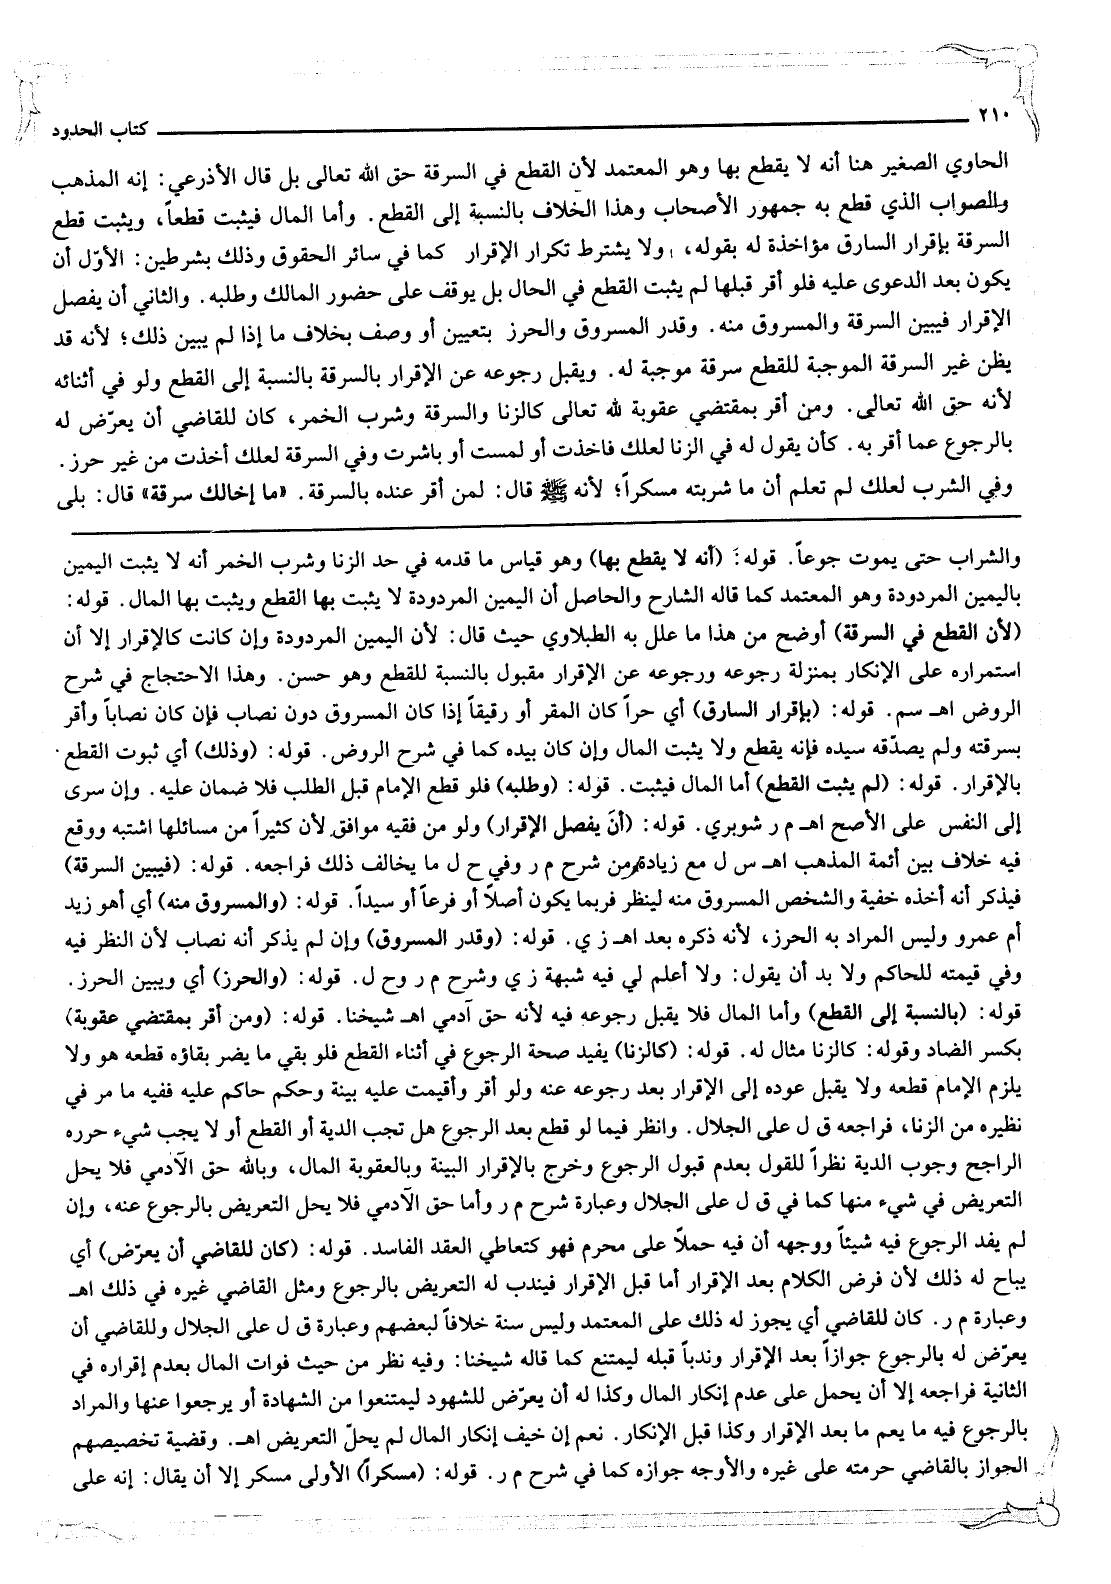 ٢١٠ كتاب الحدود
الحاوي الصغير هنا أنه لا يقطع بها وهو المعتمد لأن القطع في السرقة حق الله تعالى بل قال الأذرعي: إنه المذهب
والصواب الذي قطع به جمهور الأصحاب وهذا الخلاف بالنسبة إلى القطع. وأما المال فيثبت قطعاً، ويثبت قطع
السرقة بإقرار السارق مؤاخذة له بقوله، ولا يشترط تكرار الإقرار كما في سائر الحقوق وذلك بشرطين: الأوّل أن
يكون بعد الدعوى عليه فلو أقر قبلها لم يثبت القطع في الحال بل يوقف على حضور المالك وطلبه. والثاني أن يفصل
الإقرار فيبين السرقة والمسروق منه. وقدر المسروق والحرز بتعيين أو وصف بخلاف ما إذا لم يبين ذلك؛ لأنه قد
يظن غير السرقة الموجبة للقطع سرقة موجبة له. ويقبل رجوعه عن الإقرار بالسرقة بالنسبة إلى القطع ولو في أثنائه
لأنه حق الله تعالى. ومن أقر بمقتضي عقوبة لله تعالى كالزنا والسرقة وشرب الخمر، كان للقاضي أن يعرّض له
بالرجوع عما أقر به. كأن يقول له في الزنا لعلك فاخذت أو لمست أو باشرت وفي السرقة لعلك أخذت من غير حرز.
وفي الشرب لعلك لم تعلم أن ما شربته مسكراً؛ لأنه ﷺ قال: لمن أقر عنده بالسرقة. «ما إخالك سرقة» قال: بلى
والشراب حتى يموت جوعاً. قوله: (أنه لا يقطع بها) وهو قياس ما قدمه في حد الزنا وشرب الخمر أنه لا يثبت اليمين
باليمين المردودة وهو المعتمد كما قاله الشارح والحاصل أن اليمين المردودة لا يثبت بها القطع ويثبت بها المال. قوله:
(لأن القطع في السرقة) أوضح من هذا ما علل به الطبلاوي حيث قال: لأن اليمين المردودة وإن كانت كالإقرار إلا أن
استمراره على الإنكار بمنزلة رجوعه ورجوعه عن الإقرار مقبول بالنسبة للقطع وهو حسن. وهذا الاحتجاج في شرح
الروض اهـ سم. قوله: (بإقرار السارق) أي حراً كان المقر أو رقيقاً إذا كان المسروق دون نصاب فإن كان نصاباً وأقر
بسرقته ولم يصدّقه سيده فإنه يقطع ولا يثبت المال وإن كان بيده كما في شرح الروض. قوله: (وذلك) أي ثبوت القطع
بالإقرار. قوله: (لم يثبت القطع) أما المال فيثبت. قوله: (وطلبه) فلو قطع الإمام قبل الطلب فلا ضمان عليه. وإن سرى
إلى النفس على الأصح اهـ م ر شوبري. قوله: (أن يفصل الإقرار) ولو من فقيه موافق لأن كثيراً من مسائلها اشتبه ووقع
فيه خلاف بين أئمة المذهب اهـ س ل مع زيادة من شرح م ر وفي ح ل ما يخالف ذلك فراجعه. قوله: (فيبين السرقة)
فيذكر أنه أخذه خفية والشخص المسروق منه لينظر فربما يكون أصلاً أو فرعاً أو سيداً. قوله: (والمسروق منه) أي أهو زيد
أم عمرو وليس المراد به الحرز، لأنه ذكره بعد اهـ ز ي. قوله: (وقدر المسروق) وإن لم يذكر أنه نصاب لأن النظر فيه
وفي قيمته للحاكم ولا بد أن يقول: ولا أعلم لي فيه شبهة ز ي وشرح م ر وح ل. قوله: (والحرز) أي ويبين الحرز.
قوله: (بالنسبة إلى القطع) وأما المال فلا يقبل رجوعه فيه لأنه حق آدمي اهـ شيخنا. قوله: (ومن أقر بمقتضي عقوبة)
بكسر الضاد وقوله: كالزنا مثال له. قوله: (كالزنا) يفيد صحة الرجوع في أثناء القطع فلو بقي ما يضر بقاؤه قطعه هو ولا
يلزم الإمام قطعه ولا يقبل عوده إلى الإقرار بعد رجوعه عنه ولو أقر وأقيمت عليه بينة وحكم حاكم عليه ففيه ما مر في
نظيره من الزنا، فراجعه ق ل على الجلال. وانظر فيما لو قطع بعد الرجوع هل تجب الدية أو القطع أو لا يجب شيء حرره
الراجح وجوب الدية نظراً للقول بعدم قبول الرجوع وخرج بالإقرار البينة وبالعقوبة المال، وبالله حق الآدمي فلا يحل
التعريض في شيء منها كما في ق ل على الجلال وعبارة شرح م ر وأما حق الآدمي فلا يحل التعريض بالرجوع عنه، وإن
لم يفد الرجوع فيه شيئاً ووجهه أن فيه حملاً على محرم فهو كتعاطي العقد الفاسد. قوله: (كان للقاضي أن يعرّض) أي
يباح له ذلك لأن فرض الكلام بعد الإقرار أما قبل الإقرار فيندب له التعريض بالرجوع ومثل القاضي غيره في ذلك اهـ
وعبارة م ر. كان للقاضي أي يجوز له ذلك على المعتمد وليس سنة خلافاً لبعضهم وعبارة ق ل على الجلال وللقاضي أن
يعرّض له بالرجوع جوازاً بعد الإقرار وندباً قبله ليمتنع كما قاله شيخنا: وفيه نظر من حيث فوات المال بعدم إقراره في
الثانية فراجعه إلا أن يحمل على عدم إنكار المال وكذا له أن يعرّض للشهود ليمتنعوا من الشهادة أو يرجعوا عنها والمراد
بالرجوع فيه ما يعم ما بعد الإقرار وكذا قبل الإنكار. نعم إن خيف إنكار المال لم يحلّ التعريض اهـ. وقضية تخصيصهم
الجواز بالقاضي حرمته على غيره والأوجه جوازه كما في شرح م ر. قوله: (مسكراً) الأولى مسكر إلا أن يقال: إنه على